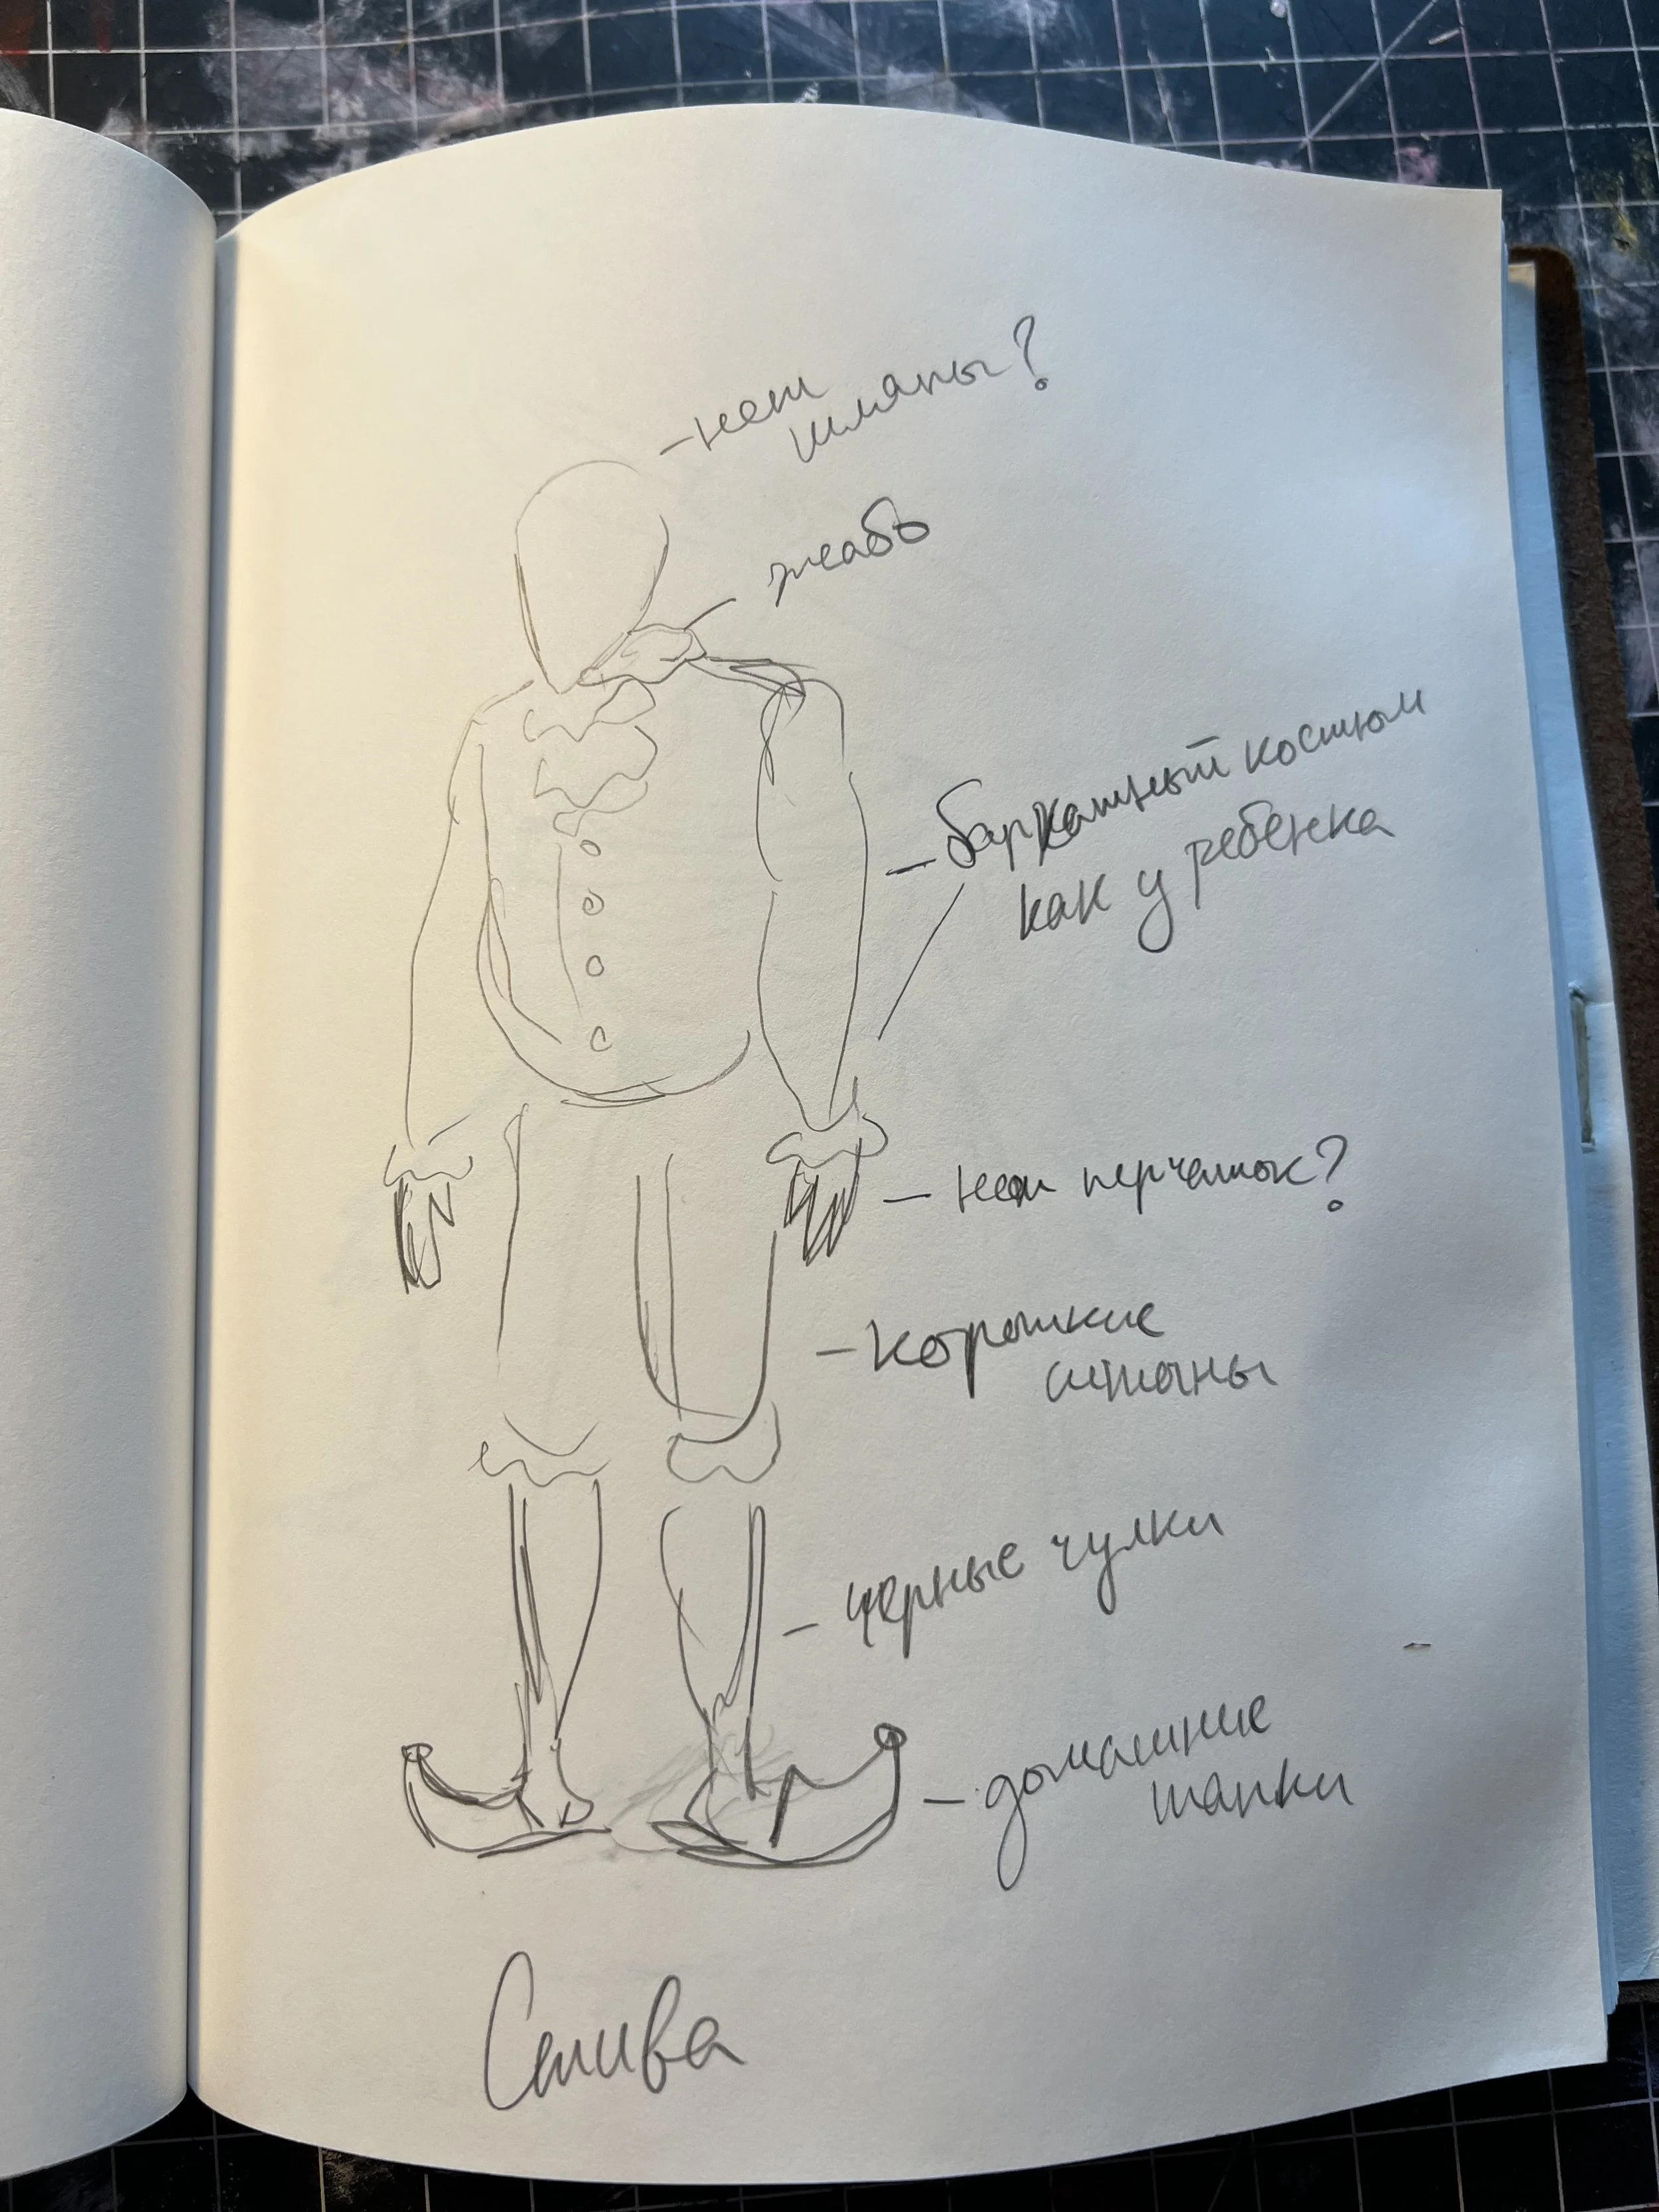 - нет
шляпы?
жабо
- бархатный костюм
как у ребенка
- нет перчаток?
- короткие
штаны
- черные чулки
- домашние
тапки
Стива